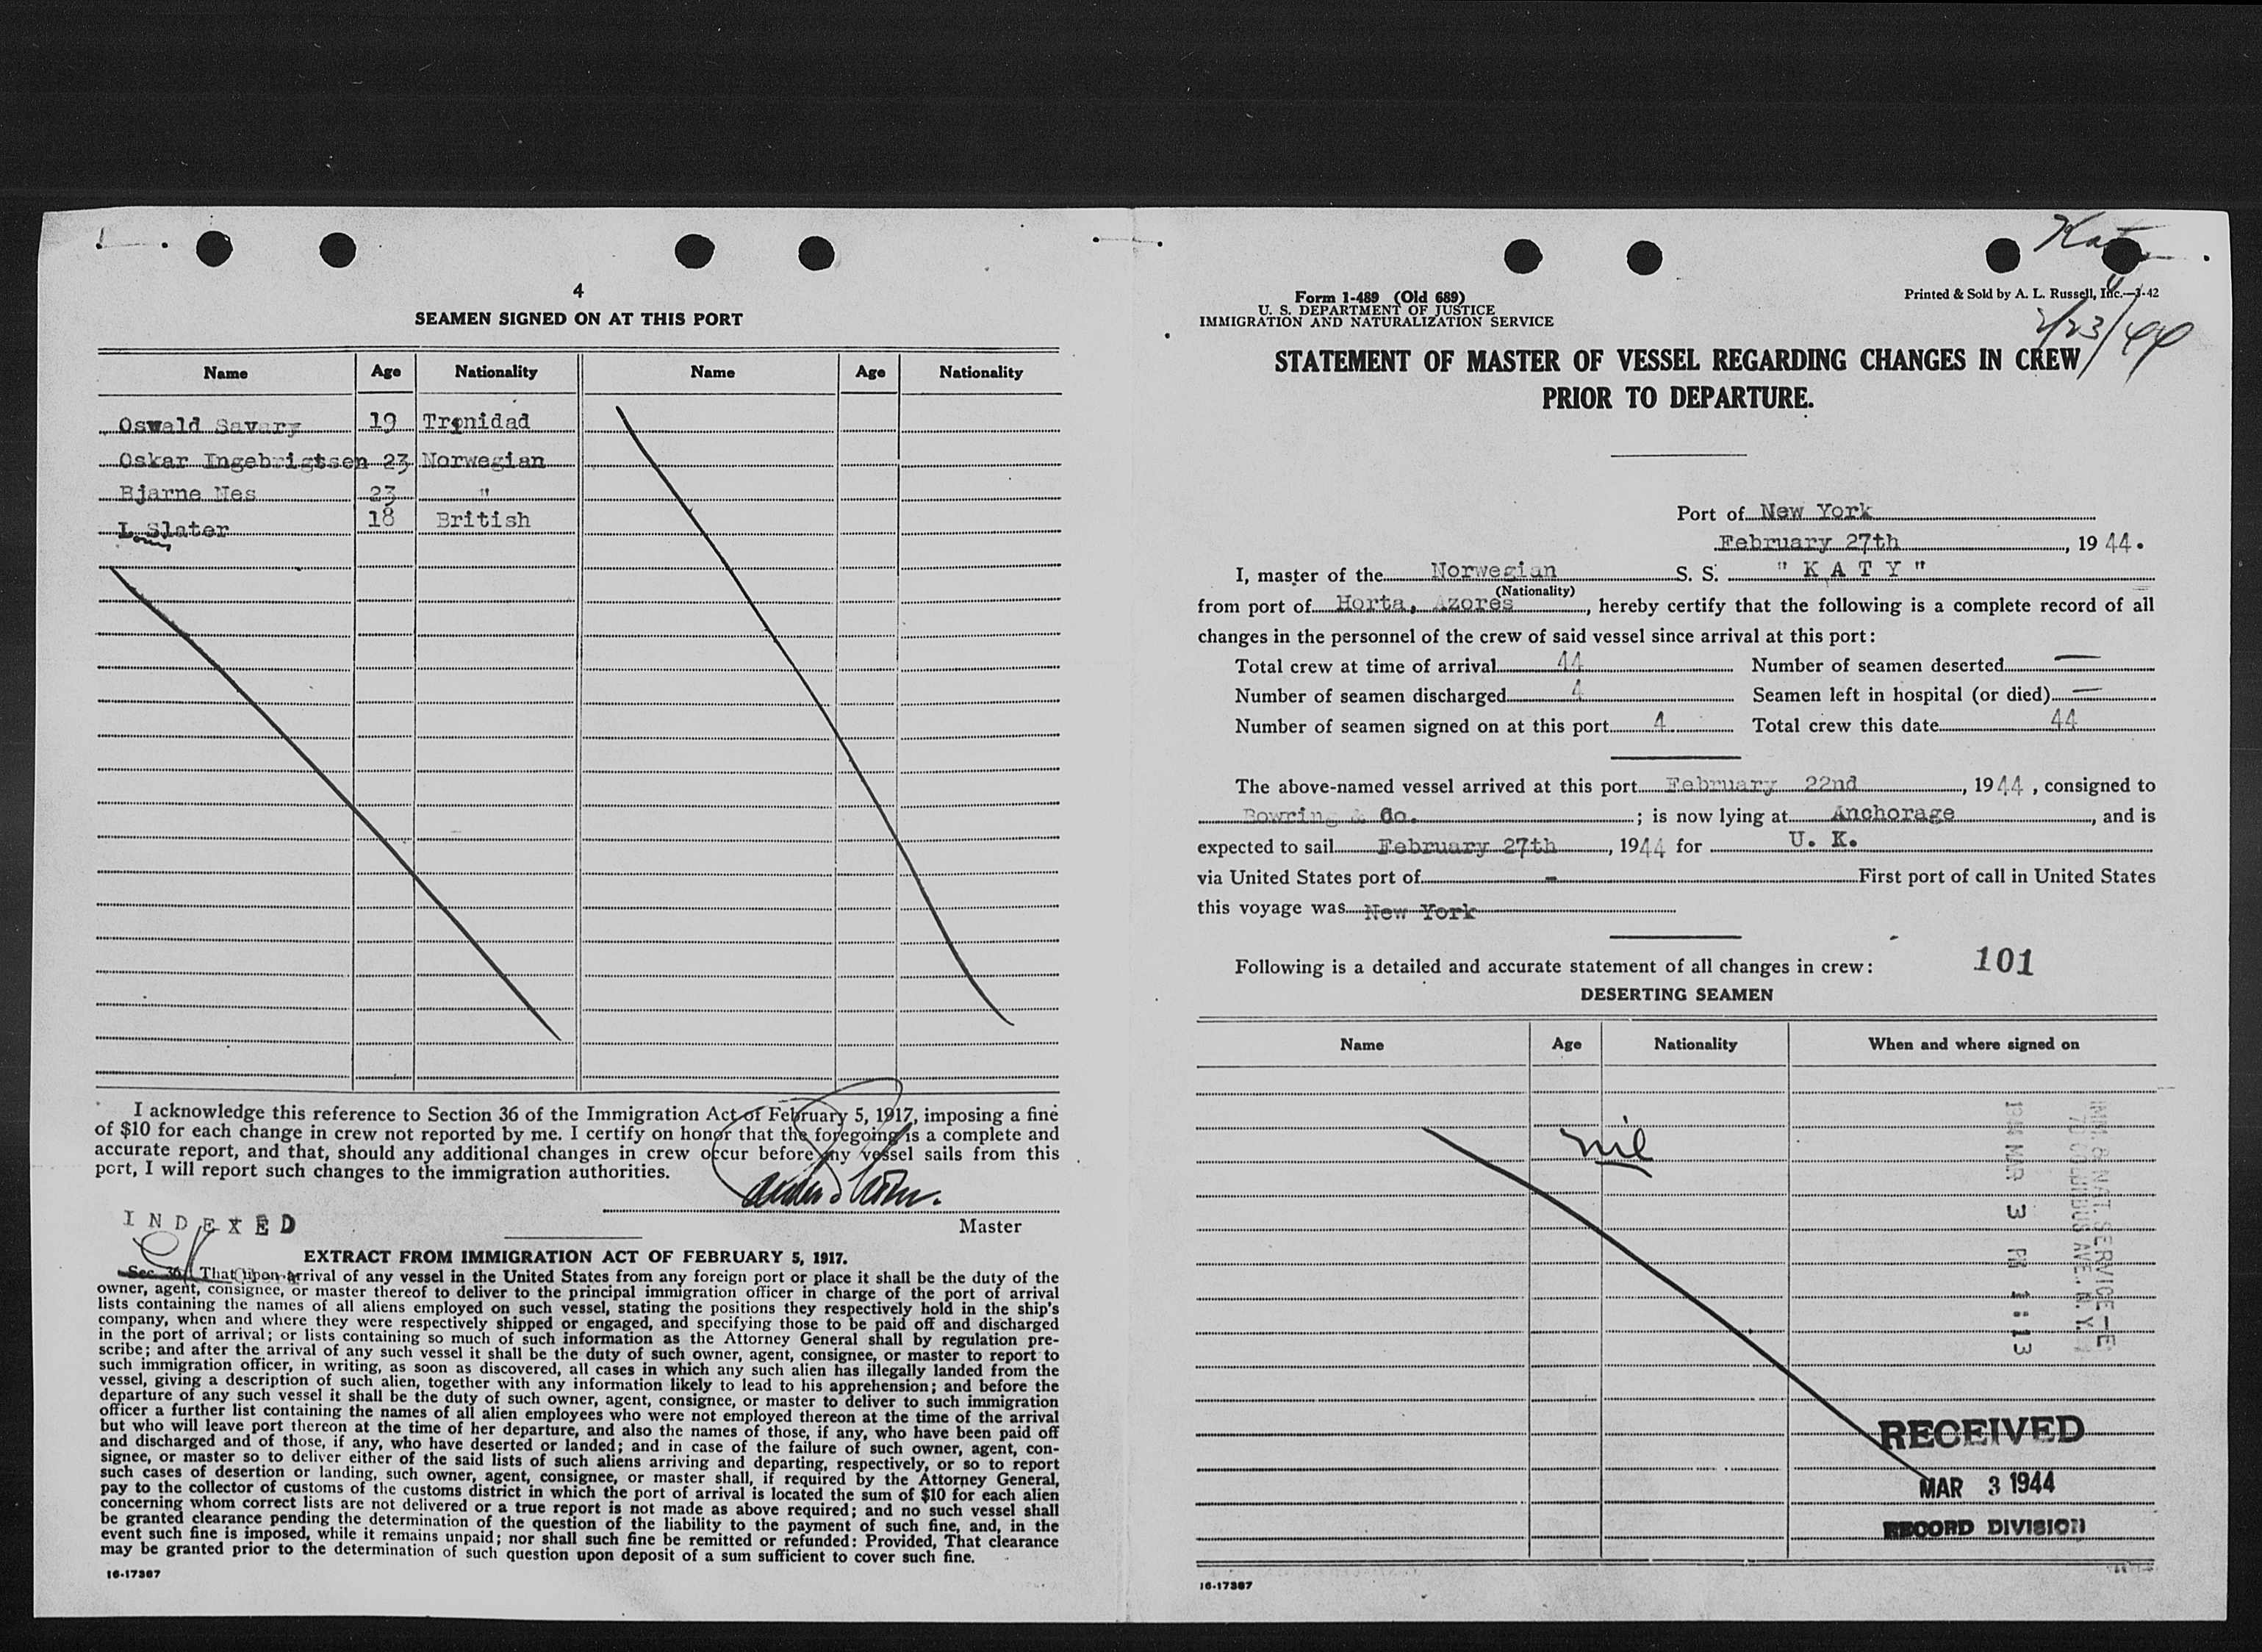 4
SEAMEN SIGNED ON AT THIS PORT
Name Age Nationality Name Age Nationality
Oswald Savary 19 Trinidad
Oskar Ingebrigtsen 23 Norwegian
Bjarne Nes 23 "
L. Slater 18 British
I acknowledge this reference to Section 36 of the Immigration Act of February 5, 1917, imposing a fine
of $10 for each change in crew not reported by me. I certify on honor that the foregoing is a complete and
accurate report, and that, should any additional changes in crew occur before my vessel sails from this
port, I will report such changes to the immigration authorities.
Master
INDEXED
EXTRACT FROM IMMIGRATION ACT OF FEBRUARY 5, 1917.
Sec. 36. That upon arrival of any vessel in the United States from any foreign port or place it shall be the duty of the
owner, agent, consignee, or master thereof to deliver to the principal immigration officer in charge of the port of arrival
lists containing the names of all aliens employed on such vessel, stating the positions they respectively hold in the ship's
company, when and where they were respectively shipped or engaged, and specifying those to be paid off and discharged
in the port of arrival; or lists containing so much of such information as the Attorney General shall by regulation pre-
scribe; and after the arrival of any such vessel it shall be the duty of such owner, agent, consignee, or master to report to
such immigration officer, in writing, as soon as discovered, all cases in which any such alien has illegally landed from the
vessel, giving a description of such alien, together with any information likely to lead to his apprehension; and before the
departure of any such vessel it shall be the duty of such owner, agent, consignee, or master to deliver to such immigration
officer a further list containing the names of all alien employees who were not employed thereon at the time of the arrival
but who will leave port thereon at the time of her departure, and also the names of those, if any, who have been paid off
and discharged and of those, if any, who have deserted or landed; and in case of the failure of such owner, agent, con-
signee, or master so to deliver either of the said lists of such aliens arriving and departing, respectively, or so to report
such cases of desertion or landing, such owner, agent, consignee, or master shall, if required by the Attorney General,
pay to the collector of customs of the customs district in which the port of arrival is located the sum of $10 for each alien
concerning whom correct lists are not delivered or a true report is not made as above required; and no such vessel shall
be granted clearance pending the determination of the question of the liability to the payment of such fine, and, in the
event such fine is imposed, while it remains unpaid; nor shall such fine be remitted or refunded: Provided, That clearance
may be granted prior to the determination of such question upon deposit of a sum sufficient to cover such fine.
16-17367
Katy
2/23/44
Form 1-489 (Old 689)
U. S. DEPARTMENT OF JUSTICE
IMMIGRATION AND NATURALIZATION SERVICE
Printed & Sold by A. L. Russell, Inc.—3-42
STATEMENT OF MASTER OF VESSEL REGARDING CHANGES IN CREW
PRIOR TO DEPARTURE.
Port of New York
February 27th, 1944.
I, master of the Norwegian S. S. "KATY"
(Nationality)
from port of Horta, Azores, hereby certify that the following is a complete record of all
changes in the personnel of the crew of said vessel since arrival at this port:
Total crew at time of arrival 44 Number of seamen deserted —
Number of seamen discharged 4 Seamen left in hospital (or died) —
Number of seamen signed on at this port 4 Total crew this date 44
The above-named vessel arrived at this port February 22nd, 1944, consigned to
Bowring & Co.; is now lying at Anchorage, and is
expected to sail February 27th, 1944 for U. K.
via United States port of - First port of call in United States
this voyage was New York
Following is a detailed and accurate statement of all changes in crew: 101
DESERTING SEAMEN
Name Age Nationality When and where signed on
nil
IMM. & NAT. SERVICE
70 COLUMBUS AVE. N. Y.
1944 MAR 3 PM 1:13
RECEIVED
MAR 3 1944
RECORD DIVISION
16-17367